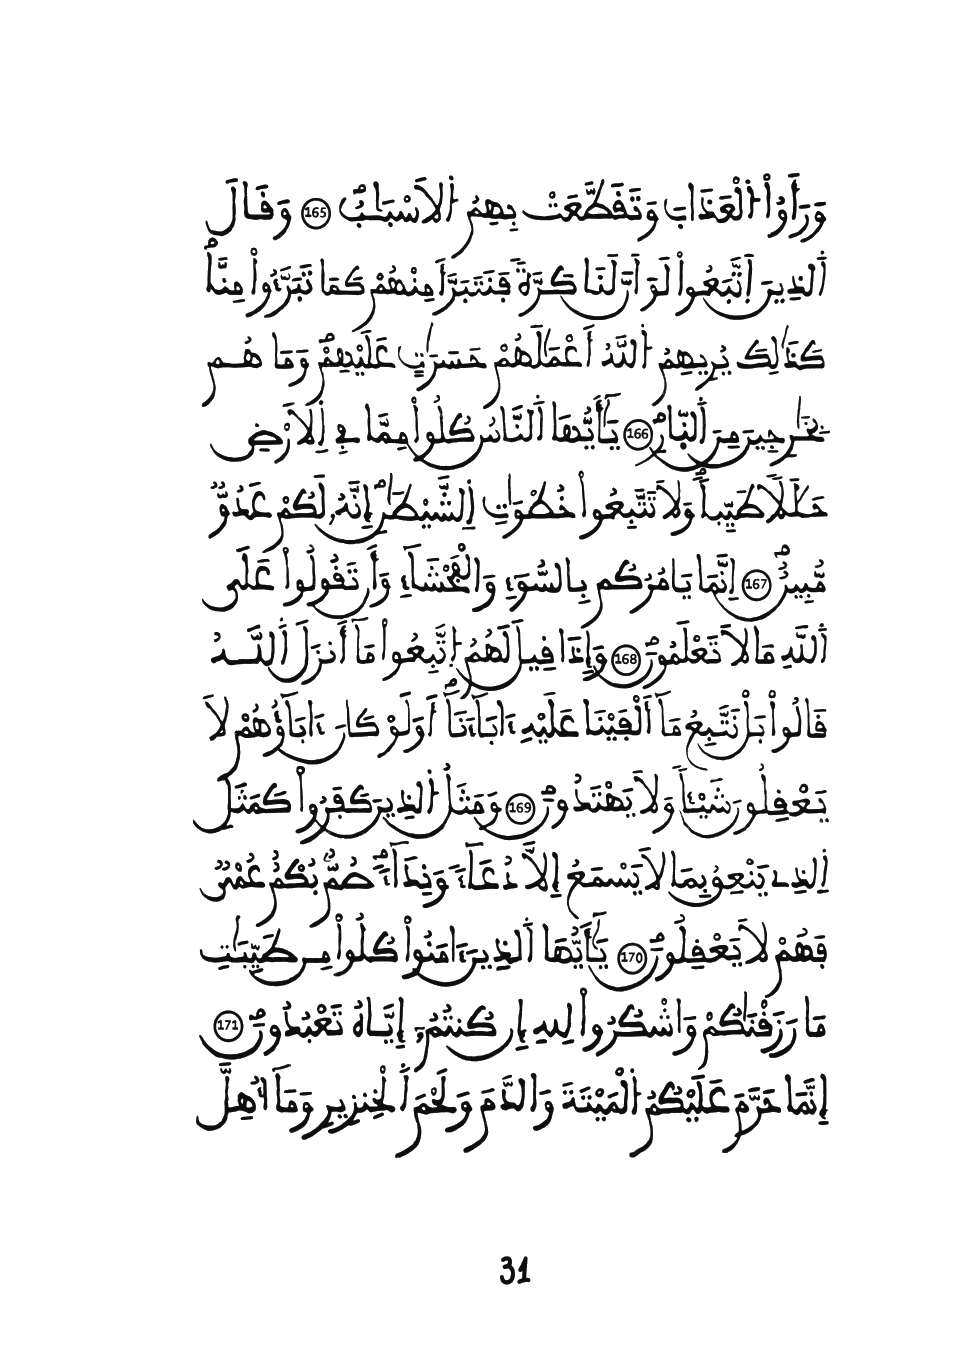 وَرَأَوُاْ اُ۬لْعَذَابَ وَتَقَطَّعَتْ بِهِمُ اُ۬لَاسْبَٰبُۖ 165 وَقَالَ
اَ۬لذِينَ اَ۪تَّبَعُواْ لَوَ اَنَّ لَنَا كَرَّةٗ فَنَتَبَرَّأَ مِنْهُمْ كَمَا تَبَرَّءُواْ مِنَّاۖ
كَذَٰلِكَ يُرِيهِمُ اُ۬للَّهُ أَعْمَٰلَهُمْ حَسَرَٰتٍ عَلَيْهِمْۖ وَمَا هُم
بِخَٰرِجِينَ مِنَ اَ۬لنّ۪ارِۖ 166 يَٰٓأَيُّهَا اَ۬لنَّاسُ كُلُواْ مِمَّا فِے اِ۬لَارْضِ
حَلَٰلاٗ طَيِّباٗۖ وَلَا تَتَّبِعُواْ خُطْوَٰتِ اِ۬لشَّيْطَٰنِۖ إِنَّهُۥ لَكُمْ عَدُوّٞ
مُّبِينٌۖ 167 اِنَّمَا يَامُرُكُم بِالسُّوٓءِ وَالْفَحْشَآءِ وَأَن تَقُولُواْ عَلَى
اَ۬للَّهِ مَا لَا تَعْلَمُونَۖ 168 وَإِذَا قِيلَ لَهُمُ اُ۪تَّبِعُواْ مَآ أَنزَلَ اَ۬للَّهُ
قَالُواْ بَلْ نَتَّبِعُ مَآ أَلْفَيْنَا عَلَيْهِ ءَابَآءَنَآۖ أَوَلَوْ كَانَ ءَابَآؤُهُمْ لَا
يَعْقِلُونَ شَيْـٔاٗ وَلَا يَهْتَدُونَۖ 169 وَمَثَلُ اُ۬لذِينَ كَفَرُواْ كَمَثَلِ
اِ۬لذِے يَنْعِقُ بِمَا لَا يَسْمَعُ إِلَّا دُعَآءٗ وَنِدَآءٗۖ صُمُّۢ بُكْمٌ عُمْيٞ
فَهُمْ لَا يَعْقِلُونَۖ 170 يَٰٓأَيُّهَا اَ۬لذِينَ ءَامَنُواْ كُلُواْ مِن طَيِّبَٰتِ
مَا رَزَقْنَٰكُمْ وَاشْكُرُواْ لِلهِ إِن كُنتُمُۥٓ إِيَّاهُ تَعْبُدُونَۖ 171
اِنَّمَا حَرَّمَ عَلَيْكُمُ اُ۬لْمَيْتَةَ وَالدَّمَ وَلَحْمَ اَ۬لْخِنزِيرِ وَمَآ أُهِلَّ
31